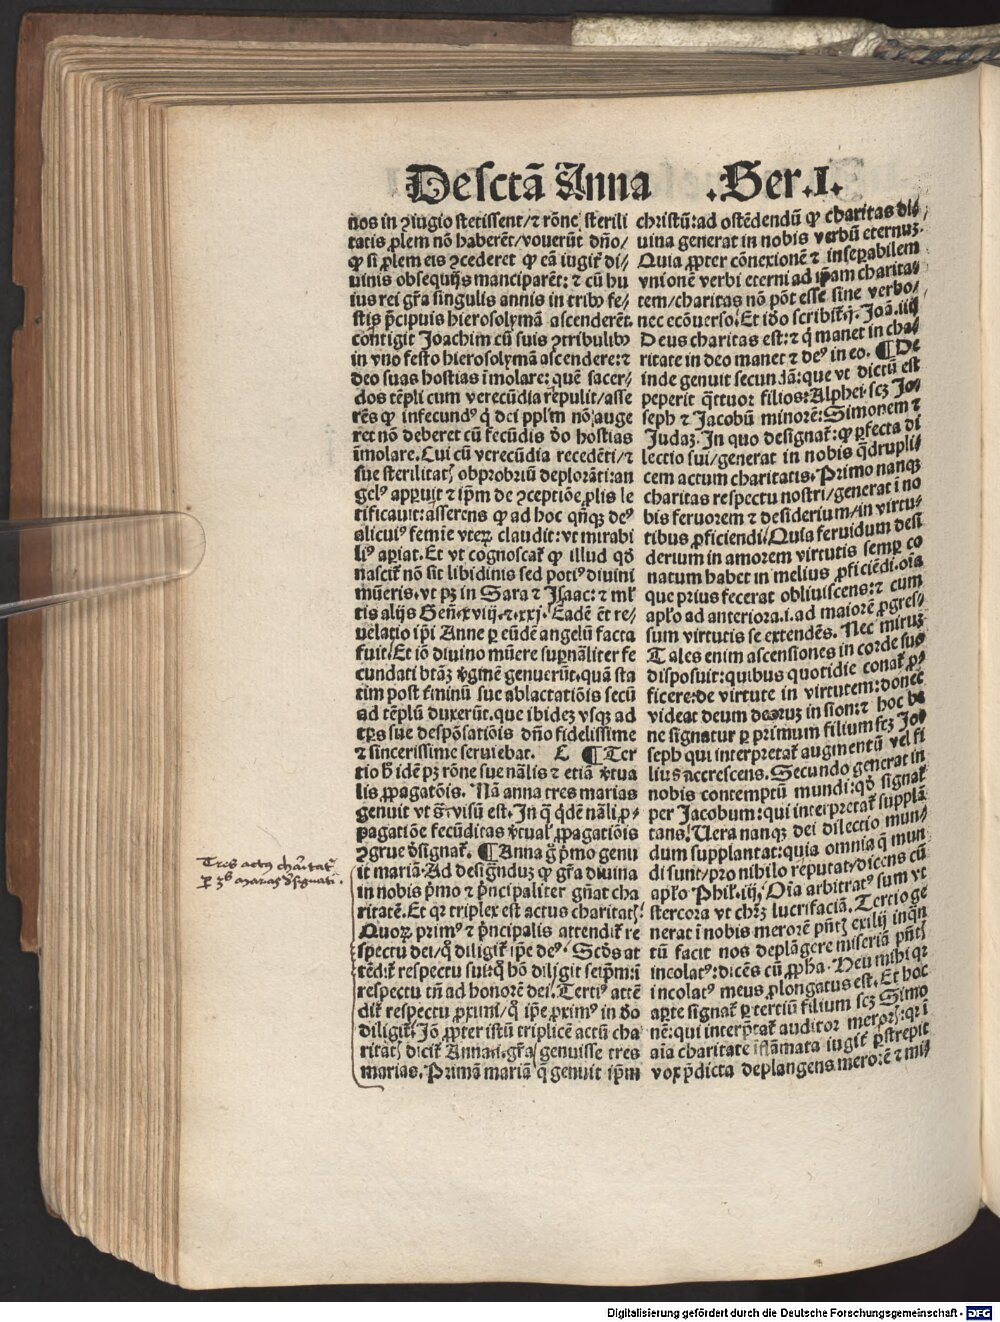 De sctã Anna .Ser.I.
nos in ꝯiugio stetissent/⁊ rõne sterili
tatis ꝓlem nõ haberẽt/vouerũt dño/
ꝙ si ꝓlem eis ꝯcederet ꝙ eã iugiť di/
uinis obsequijs manciparẽt: ⁊ cũ hu
ius rei gřa singulis annis in tribꝰ fe/
stis p̃cipuis hierosolymã ascenderẽt.
contigit Joachim cũ suis ꝯtribulibꝰ
in vno festo hierosolymã ascendere: ⁊
deo suas hostias ĩmolare: quẽ sacer/
dos tẽpli cum verecũdia repulit/asse
rẽs ꝙ infecundꝰ q̇ dei ppľm nõ auge
ret nõ deberet cũ fecũdis deo hostias
ĩmolare. Cui cũ verecũdia recedẽti/⁊
sue sterilitatꝭ obprobriũ deplorãti: an
gelꝰ apparuit ⁊ ip̃m de ꝯceptiõe ꝓlis le
tificauit: asserens ꝙ ad hoc qñqꝫ deꝰ
alicuiꝰ femie vteꝝ claudit: vt mirabi
liꝰ apiat. Et vt cognoscať ꝙ illud qđ
nasciť nõ sit libidinis sed potiꝰ diuini
mũeris. vt pꝫ in Sara ⁊ Isaac: ⁊ mľ
tis alijs Geñ. xviij. ⁊. xxj. Eadẽ ẽt re/
uelatio ip̃i Anne ꝑ eũdẽ angelũ facta
fuit/Et iõ diuino mũere suꝑnãliter fe
cundati btãꝫ v̾ginẽ genuerũt. quã sta
tim post ťminũ sue ablactatiõis secũ
ad tẽplũ duxerũt. que ibideꝫ vsqꝫ ad
tp̃s sue despõsatiõis dño fidelissime
⁊ sincerissime seruiebat. C ¶ Ter
tio ħ idẽ pꝫ rõne sue nãlis ⁊ etiã v̾tua
lis ꝓpagatõis. Nã anna tres marias
genuit vt s̃. visũ est. In q̃ q̇dẽ nãli ꝓ/
pagatiõe fecũditas v̾tual' ꝓpagatiõis
ꝯgrue designať. ¶ Anna g̃ pͥmo genu
it mariã. Ad design̾dũꝫ ꝙ gřa diuina
in nobis pͥmo ⁊ pͥncipaliter gñat cha
ritatẽ. Et qꝛ triplex est actus charitatꝭ.
Quoꝝ primꝰ ⁊ pͥncipalis attendiť re
spectu dei/q̊ diligiť ip̃e deꝰ. Scđs at
tẽdiť respectu sui/q̊ hõ diligit seip̃m: ĩ
respectu tñ ad honorẽ dei. Tertiꝰ attẽ
diť respectu ꝓximi/q̊ ip̃e ꝓximꝰ in deo
diligiť. Jõ ꝓpter istũ triplicẽ actũ cha
ritatꝭ diciť Anna. i. gřa genuisse tres
marias. Primã mariã q̃ genuit ip̃m
christũ: ad ostẽdendũ ꝙ charitas di/
uina generat in nobis verbũ eternuꝫ.
Quia ꝓpter cõnexionẽ ⁊ inseꝑabilem
vnionẽ verbi eterni ad ip̃am charita/
tem/charitas nõ põt esse sine verbo/
nec ecõuerso. Et ideo scribiť. j. Joã. iiij
Deus charitas est: ⁊ q̇ manet in cha/
ritate in deo manet ⁊ deꝰ in eo. ¶ De
inde genuit secundã: que vt dictũ est
peperit q̃ttuor filios: Alphei. scꝫ Jo/
seph ⁊ Jacobũ minorẽ: Simonem ⁊
Judaꝫ. In quo designať: ꝙ ꝑfecta di
lectio sui/generat in nobis q̃drupli/
cem actum charitatis. Primo nanqꝫ
charitas respectu nostri/generat ĩ no
bis feruorem ⁊ desiderium/in virtu/
tibus ꝓficiendi. Quia feruidum desi
derium in amorem virtutis semꝑ co
natum habet in melius ꝓficiẽdi. oĩa
que prius fecerat obliuiscens: ⁊ cum
apľo ad anteriora. i. ad maiorẽ ꝓgres/
sum virtutis se extendẽs. Nec miruꝫ
Tales enim ascensiones in corde suo
disposuit: quibus quotidie conať ꝓ/
ficere: de virtute in virtutem: donec
videat deum deoruꝫ in sion: ⁊ hoc be
ne signatur ꝑ primum filium scꝫ Jo/
seph qui interpretať augmentũ vel fi
lius accrescens. Secundo generat in
nobis contemptũ mundi: qđ signať
per Jacobum: qui interpretať supplã
tans. Uera nanqꝫ dei dilectio mun/
dum supplantat: quia omnia q̃ mun
di sunt/pro nihilo reputat/dicens cũ
apľo Phil'. iij. Oĩa arbitratꝰ sum vt
stercora vt christũ lucrifaciã. Tertio ge
nerat ĩ nobis merorẽ pñtꝭ exilij inq̃n
tũ facit nos deplãgere miseriã pñtꝭ
incolatꝰ: dicẽs cũ ꝓpha. Heu mihi qꝛ
incolatꝰ meus ꝓlongatus est. Et hoc
aꝑte signať ꝑ tertiũ filium scꝫ Simo
nẽ: qui interp̃tať auditor meroꝝ: qꝛ ĩ
aĩa charitate ĩflãmata iugiť ꝑstrepit
vox p̃dicta deplangens merorẽ ⁊ mi/
Tres actꝰ charitatꝭ
ꝑ 3ˢ marias designati.
Digitalisierung gefördert durch die Deutsche Forschungsgemeinschaft - DFG